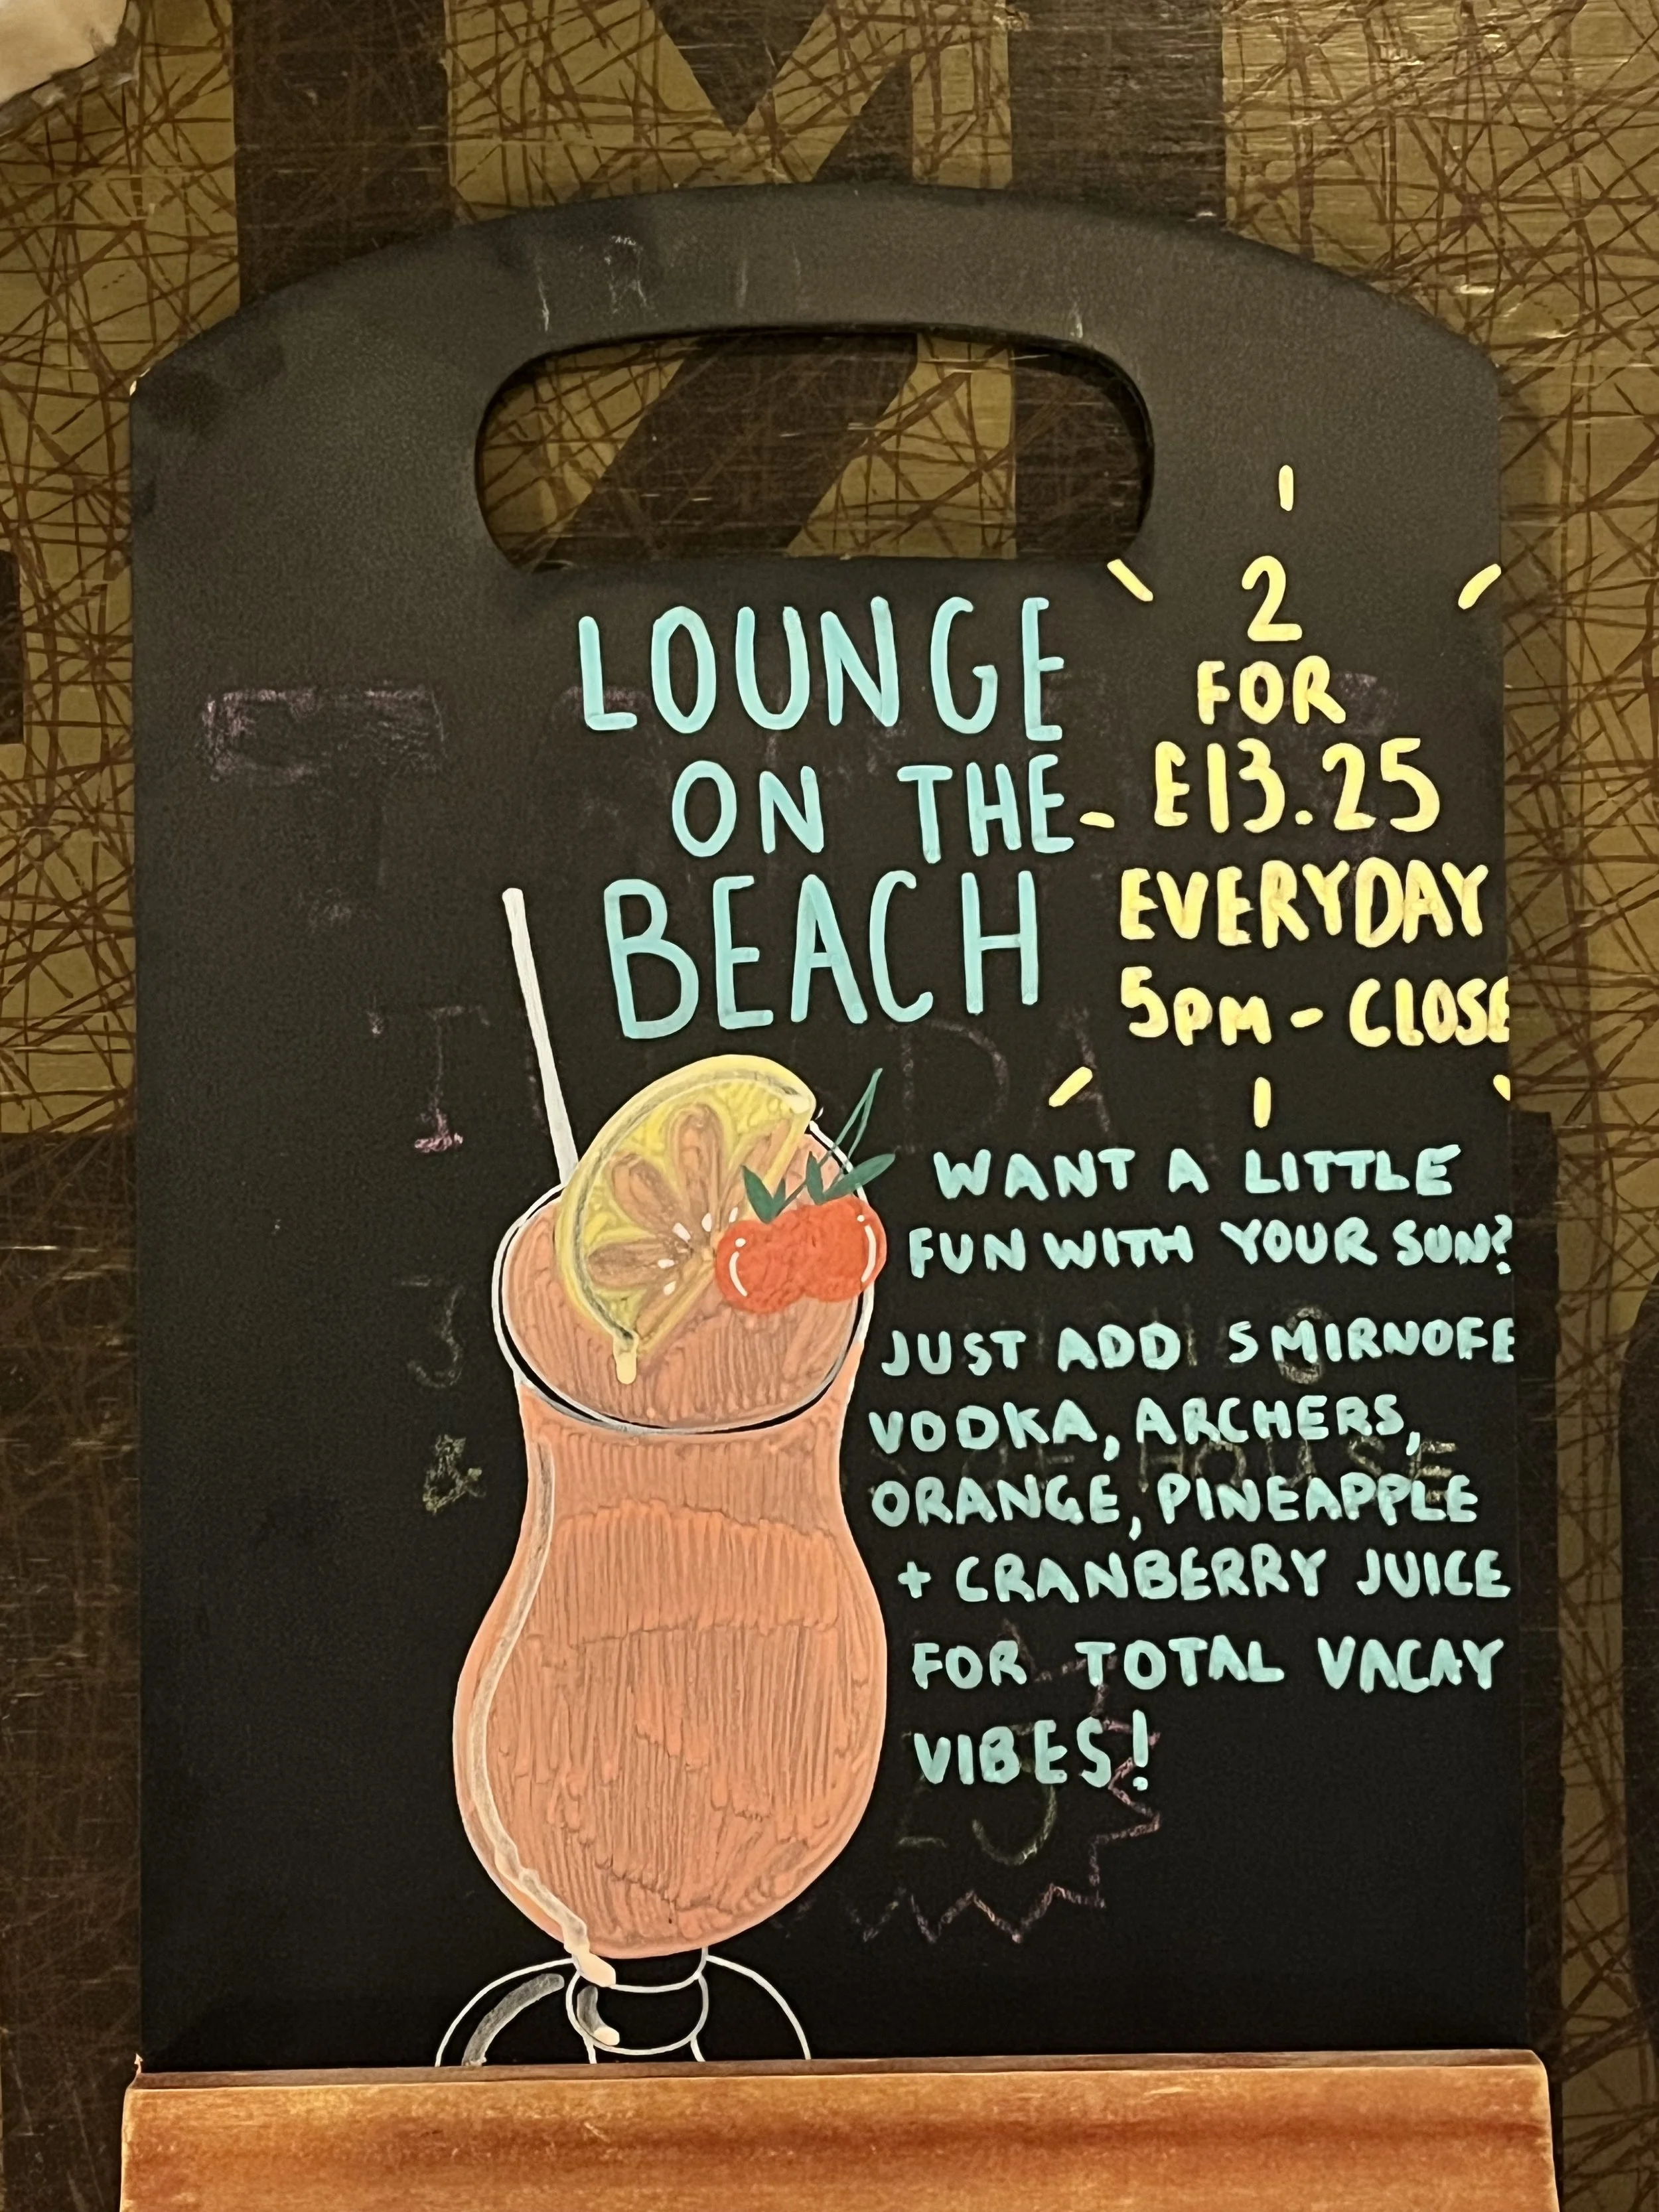 LOUNGE
ON THE
BEACH
2
FOR
£13.25
EVERYDAY
5pm - CLOSE
WANT A LITTLE
FUN WITH YOUR SUN?
JUST ADD SMIRNOFF
VODKA, ARCHERS,
ORANGE, PINEAPPLE
+ CRANBERRY JUICE
FOR TOTAL VACAY
VIBES!